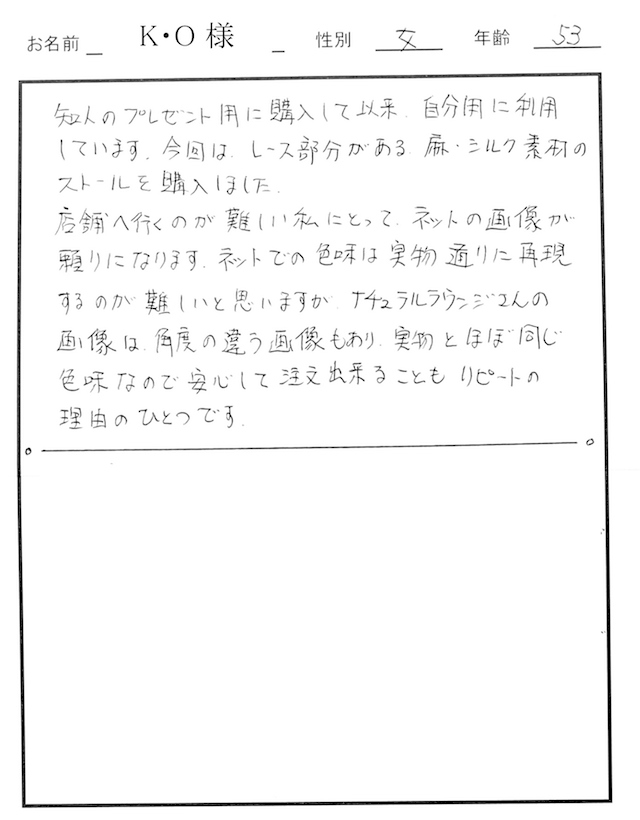 お名前 K・O 様 性別 女 年齢 53
知人のプレゼント用に購入して以来、自分用に利用
しています。今回は、レース部分がある、麻・シルク素材の
ストールを購入しました。
店舗へ行くのが難しい私にとって、ネットの画像が
頼りになります。ネットでの色味は実物通りに再現
するのが難しいと思いますが、ナチュラルラウンジさんの
画像は、角度の違う画像もあり、実物とほぼ同じ
色味なので安心して注文出来ることもリピートの
理由のひとつです。